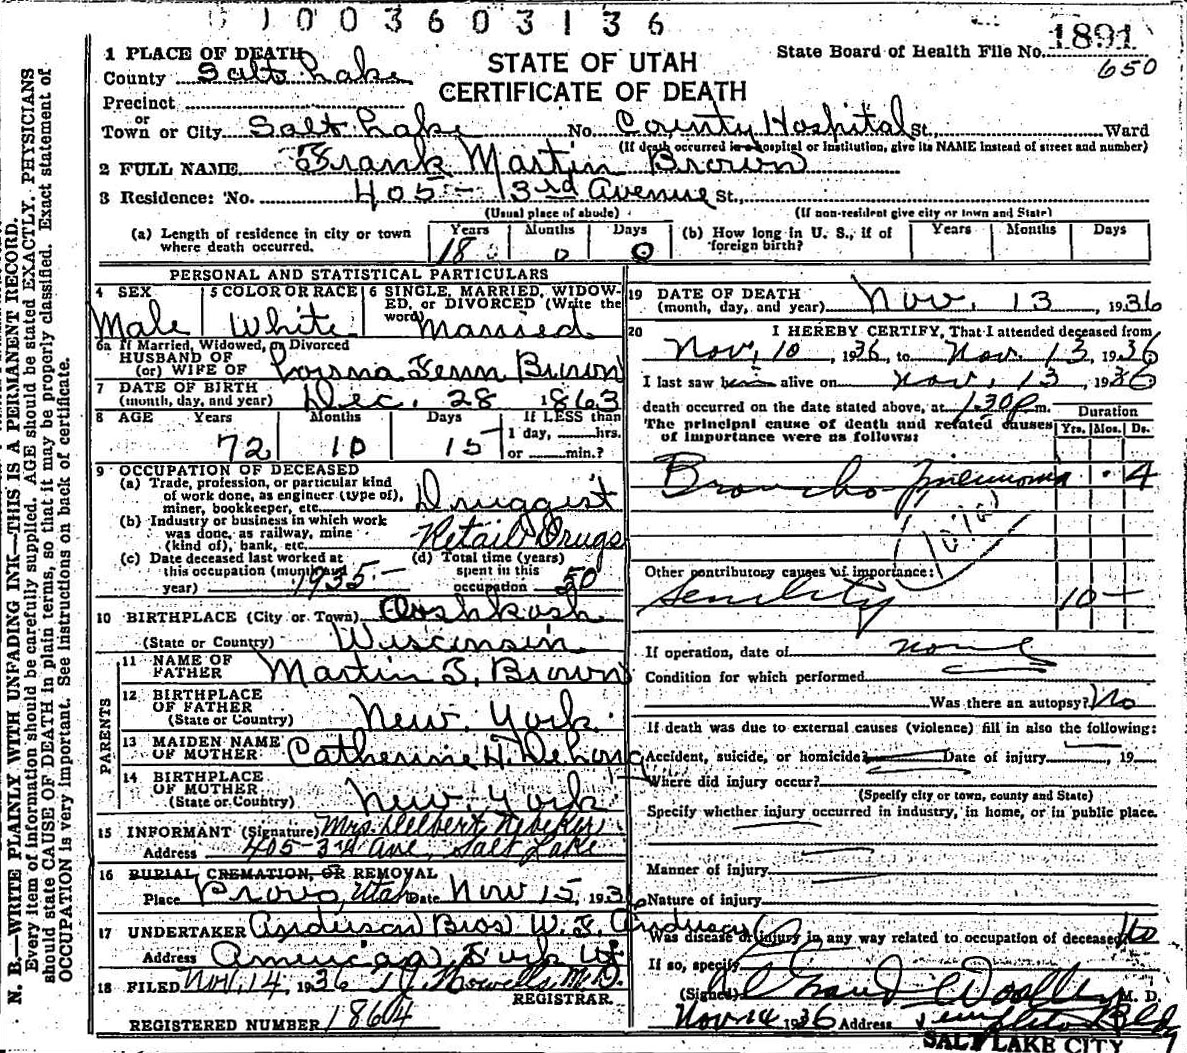 01003603136
1891
State Board of Health File No.
650
STATE OF UTAH
CERTIFICATE OF DEATH
1 PLACE OF DEATH
County Salt Lake
Precinct
or
Town or City Salt Lake No. County Hospital St., Ward
(If death occurred in a hospital or institution, give its NAME instead of street and number)
2 FULL NAME Frank Martin Brown
3 Residence: No. 405 - 13rd Avenue St.,
(Usual place of abode) (If non-resident give city or town and State)
(a) Length of residence in city or town where death occurred. Years 18 Months 0 Days 0
(b) How long in U. S., if of foreign birth? Years Months Days
PERSONAL AND STATISTICAL PARTICULARS
4 SEX Male
5 COLOR OR RACE White
6 SINGLE, MARRIED, WIDOWED, or DIVORCED (Write the word) Married
6a If Married, Widowed, or Divorced
HUSBAND OF
(or) WIFE OF Fenn Brown
7 DATE OF BIRTH
(month, day, and year) Dec. 28 1863
8 AGE Years 72 Months 10 Days 15 If LESS than 1 day, hrs. or min.?
9 OCCUPATION OF DECEASED
(a) Trade, profession, or particular kind of work done, as engineer (type of), miner, bookkeeper, etc. Druggist
(b) Industry or business in which work was done, as railway, mine (kind of), bank, etc. Retail Drugs
(c) Date deceased last worked at this occupation (month and year) 1935
(d) Total time (years) spent in this occupation 50
10 BIRTHPLACE (City or Town) Ooshkosh
(State or Country) Wisconsin
PARENTS
11 NAME OF FATHER Martin S. Brown
12 BIRTHPLACE OF FATHER
(State or Country) New York
13 MAIDEN NAME OF MOTHER Catherine H. DeLong
14 BIRTHPLACE OF MOTHER
(State or Country) New York
15 INFORMANT (Signature) Mrs. Delbert Nebeker
Address 405-3rd Ave, Salt Lake
16 BURIAL, CREMATION, OR REMOVAL
Place Provo, Utah Date Nov 15, 1936
17 UNDERTAKER Anderson Bros W. F. Anderson
Address American Fork Ut
18 FILED Nov. 14, 1936 T J Howells, M.D.
REGISTRAR.
REGISTERED NUMBER 18604
19 DATE OF DEATH
(month, day, and year) Nov. 13, 1936
20 I HEREBY CERTIFY, That I attended deceased from
Nov. 10, 1936, to Nov. 13, 1936
I last saw him alive on Nov. 13, 1936
death occurred on the date stated above, at 1:30 p m. Duration
The principal cause of death and related causes of importance were as follows: Yrs. Mos. Ds.
Broncho-Pneumonia 4
107(a)
Other contributory causes of importance:
Senility 10 -
If operation, date of none
Condition for which performed
Was there an autopsy? No
If death was due to external causes (violence) fill in also the following:
Accident, suicide, or homicide? Date of injury , 19
Where did injury occur?
(Specify city or town, county and State)
Specify whether injury occurred in industry, in home, or in public place.
Manner of injury
Nature of injury
Was disease or injury in any way related to occupation of deceased No
If so, specify
(Signed) Woolley M. D.
Nov 14 1936 Address Templeton Bldg
SALT LAKE CITY
N. B.—WRITE PLAINLY WITH UNFADING INK—THIS IS A PERMANENT RECORD.
Every item of information should be carefully supplied. AGE should be stated EXACTLY. PHYSICIANS
should state CAUSE OF DEATH in plain terms, so that it may be properly classified. Exact statement of
OCCUPATION is very important. See instructions on back of certificate.